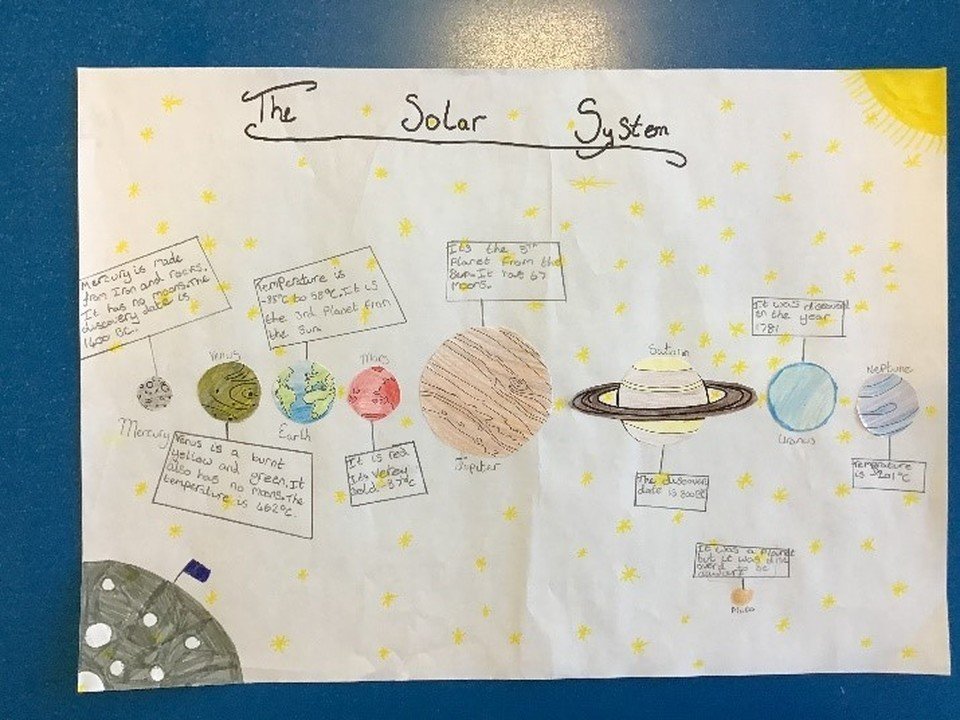 The Solar System
Mercury is made
from Iron and rocks.
It has no moons. The
discovery date is
1400 BC.
Temperature is
-88°C to 58°C. It is
the 3rd Planet from
the Sun
Its the 5th
Planet from the
Sun. It has 67
Moons.
It was discoverd
in the year
1781
Venus
Mars
Saturn
Neptune
Mercury
Earth
Jupiter
Uranus
Venus is a burnt
yellow and green. It
also has no moons. The
temperature is 462°C.
It is red
Its verey
cold -87°C
The discovery
date is 800BC
Temperature
is -201°C
It was a Planet
but it was disc
overd to be
Pluto